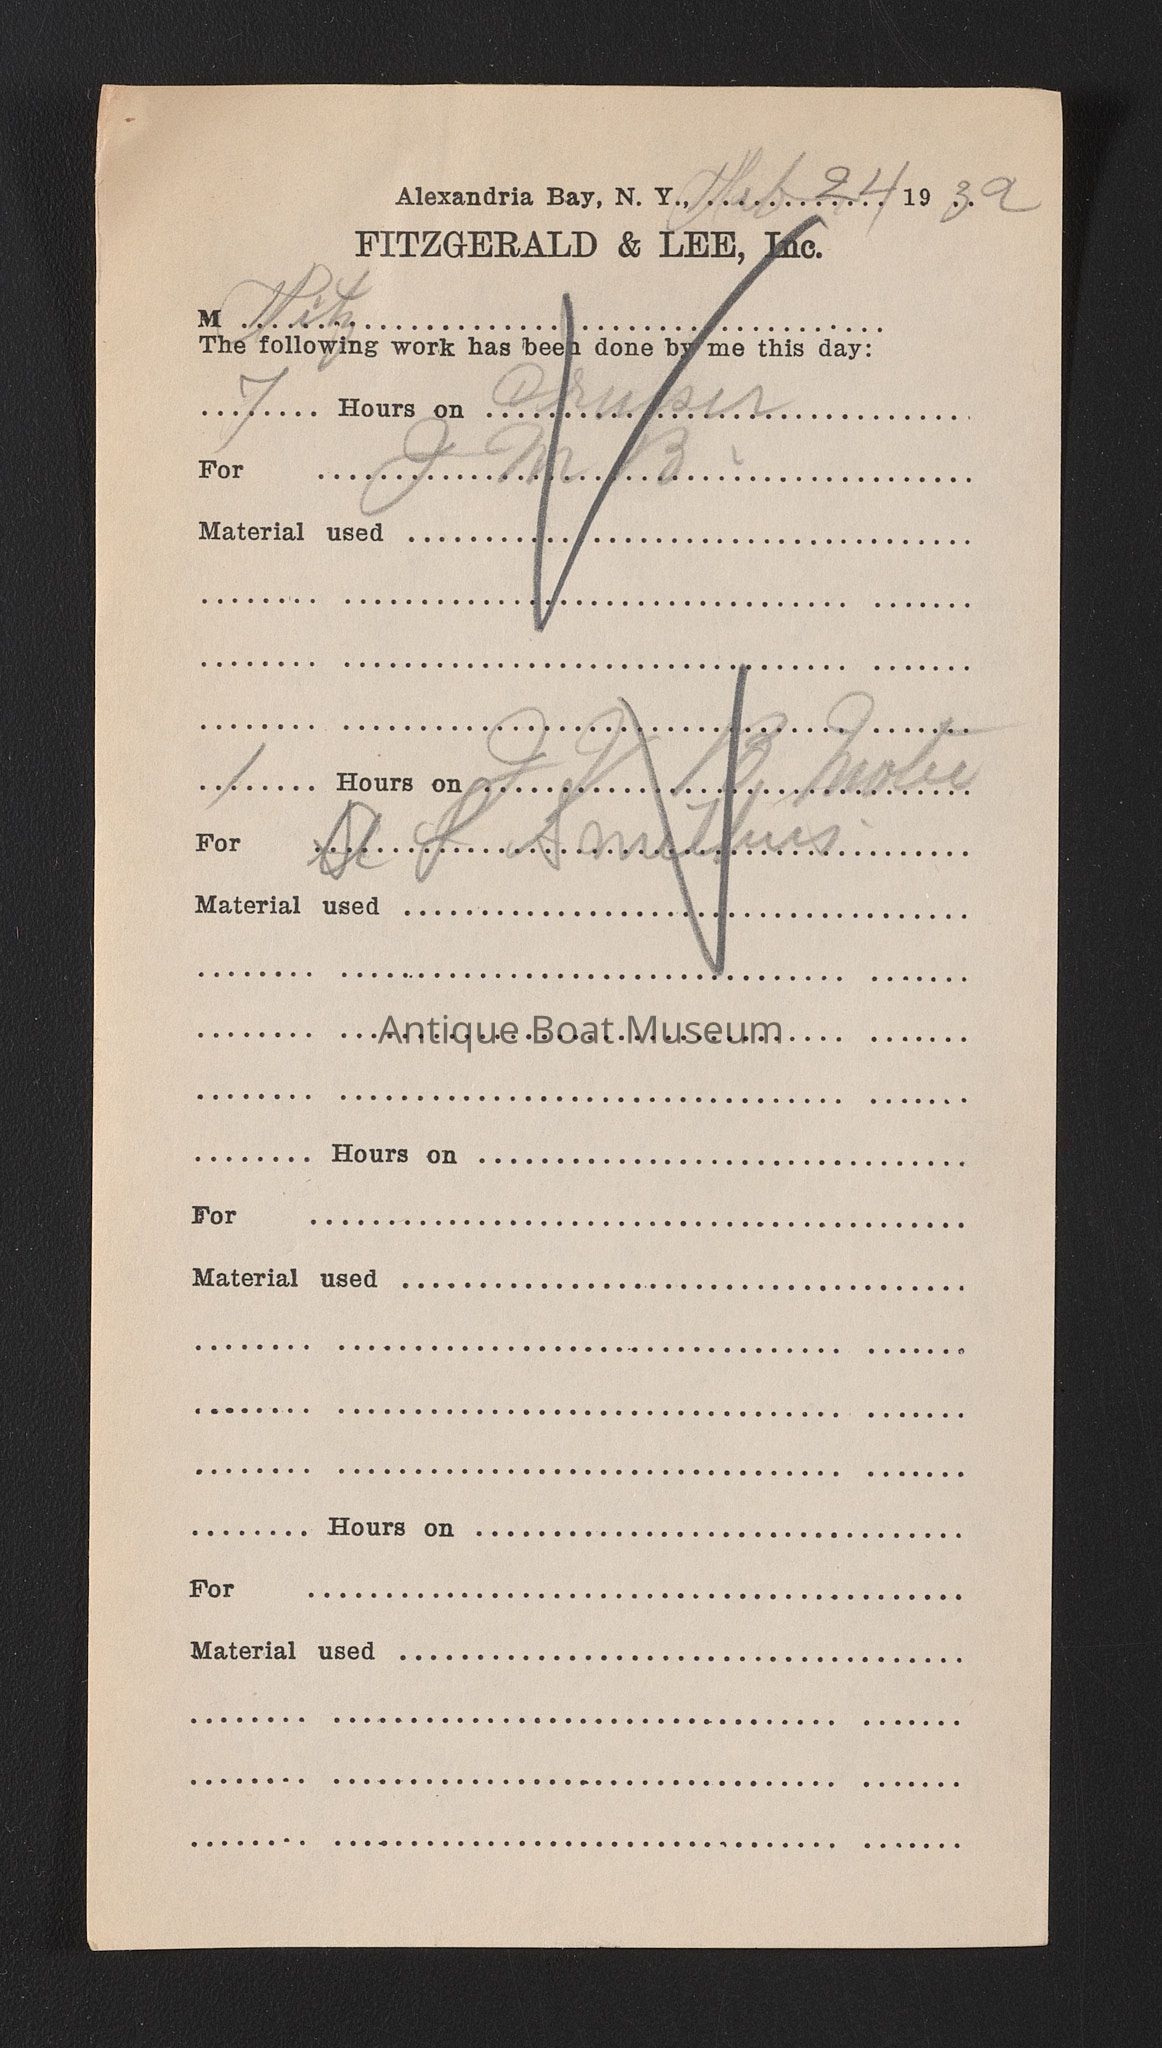 Alexandria Bay, N. Y., Feb 24 19 39
FITZGERALD & LEE, Inc.
M Fitz
The following work has been done by me this day:
7 Hours on Cruser
For J M B
Material used
1 Hours on J B
For Smithers
Material used
Antique Boat Museum
Hours on
For
Material used
Hours on
For
Material used